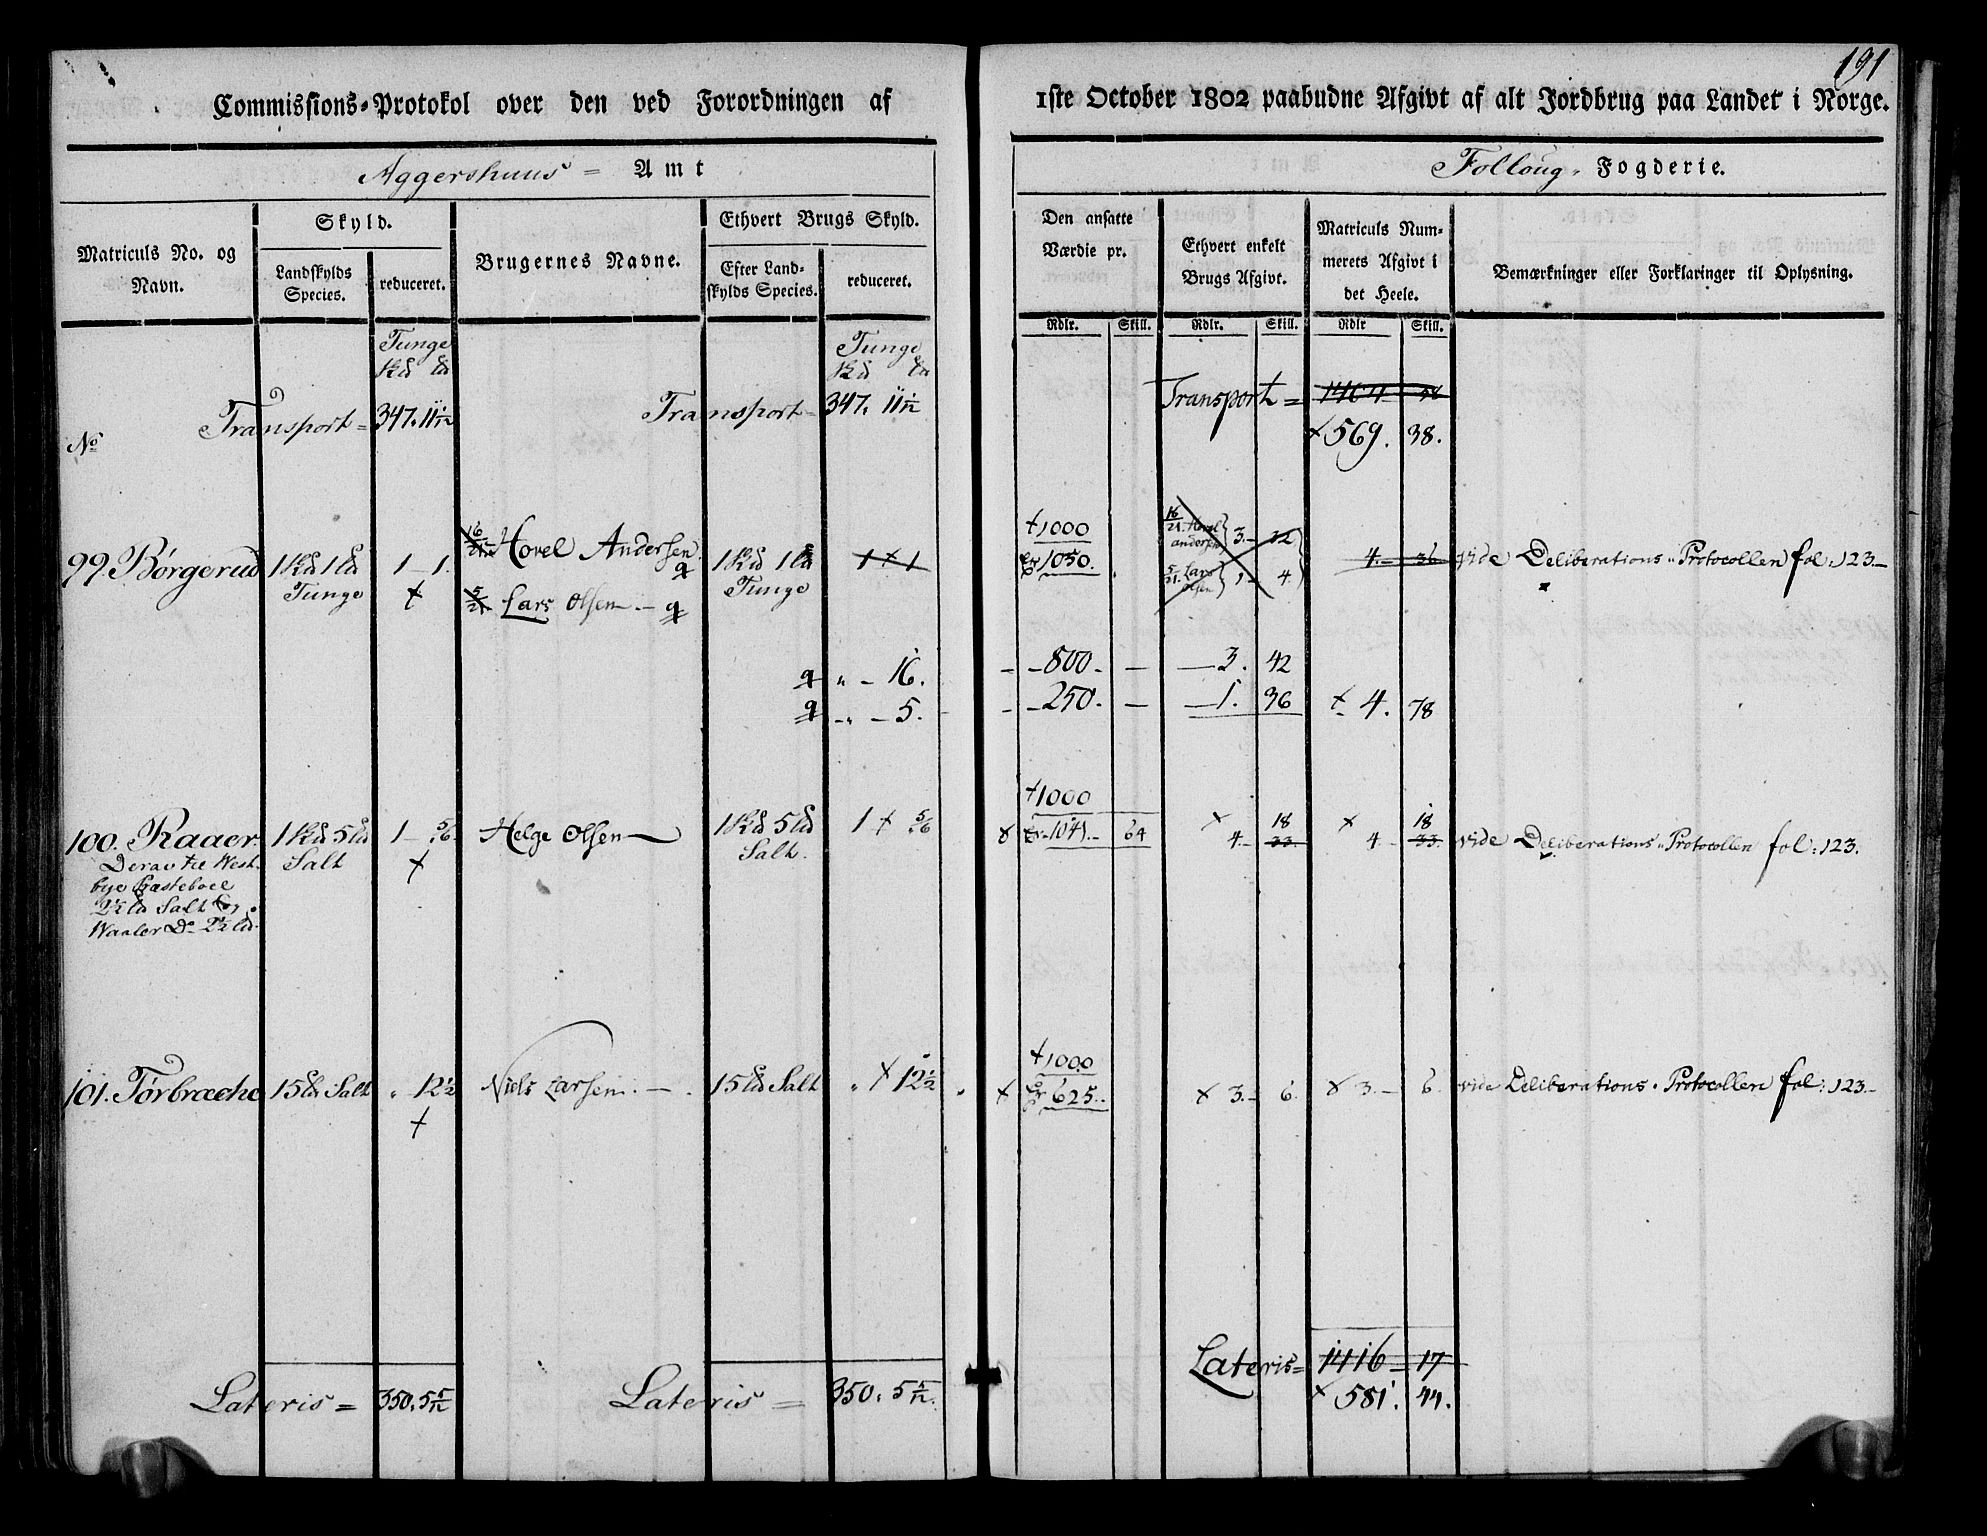 191
Commissions-Protokol over den ved Forordningen af
1ste October 1802 paabudne Afgivt af alt Jordbrug paa Landet i Norge.
Aggershuus = Amt
Folloug, Fogderie.
Matriculs No. og Navn.
Skyld.
Landskylds Species.
reduceret.
Brugernes Navne.
Ethvert Brugs Skyld.
Efter Landskylds Species.
reduceret.
Den ansatte Værdie pr.
Ethvert enkelt Brugs Afgivt.
Matriculs Nummerets Afgivt i det Heele.
Bemærkninger eller Forklaringer til Oplysning.
Rdlr. Skill. Rdlr. Skill. Rdlr Skill.
Tunge Tunge
No Transport = 347. 11 1/12 Transport = 347. 11 1/12 Transport =
+ 569. 38.
99. Børgerud 1 1 Tunge 1 - 1. +
16/21 Hovel Andersen
5/21 Lars Olsen -
Tunge
1 + 1
+1000
1050.
16/21 Hovel andersen 3. - 32
5/21. Lars Olsen 1 - 4
4. - 36
vide Deliberations-Protocollen fol: 123.-
„ - 16. - 800. - 3. 42
„ - 5. - 250. - 1. 36 + 4. 78
100. Raaer. Salt 1 - 5/6. + Helge Olsen Salt. 1 + 5/6
+1000
1041. - 64 + 4. - 18 33 + 4 18 33.
vide Deliberations-Protocollen fol: 123.
Deraf til Westbye Præsteboel
2 1/2 Salt og
Waaler Do 2 1/2
101. Tørbræche 15 Salt „ 12 1/2 + Niels Larsen. - 15 Salt „ + 12 1/2
+1000
625.. + 3. - 6. + 3. - 6.
vide Deliberations-Protocollen fol: 123.-
Lateris = 350. 5 5/12 Lateris = 350. 5 5/12. Lateris = 1416 - 17
+ 581. 44.